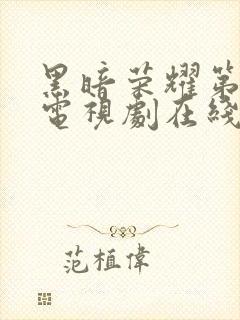 黑暗荣耀第
電視劇在綫
范植偉